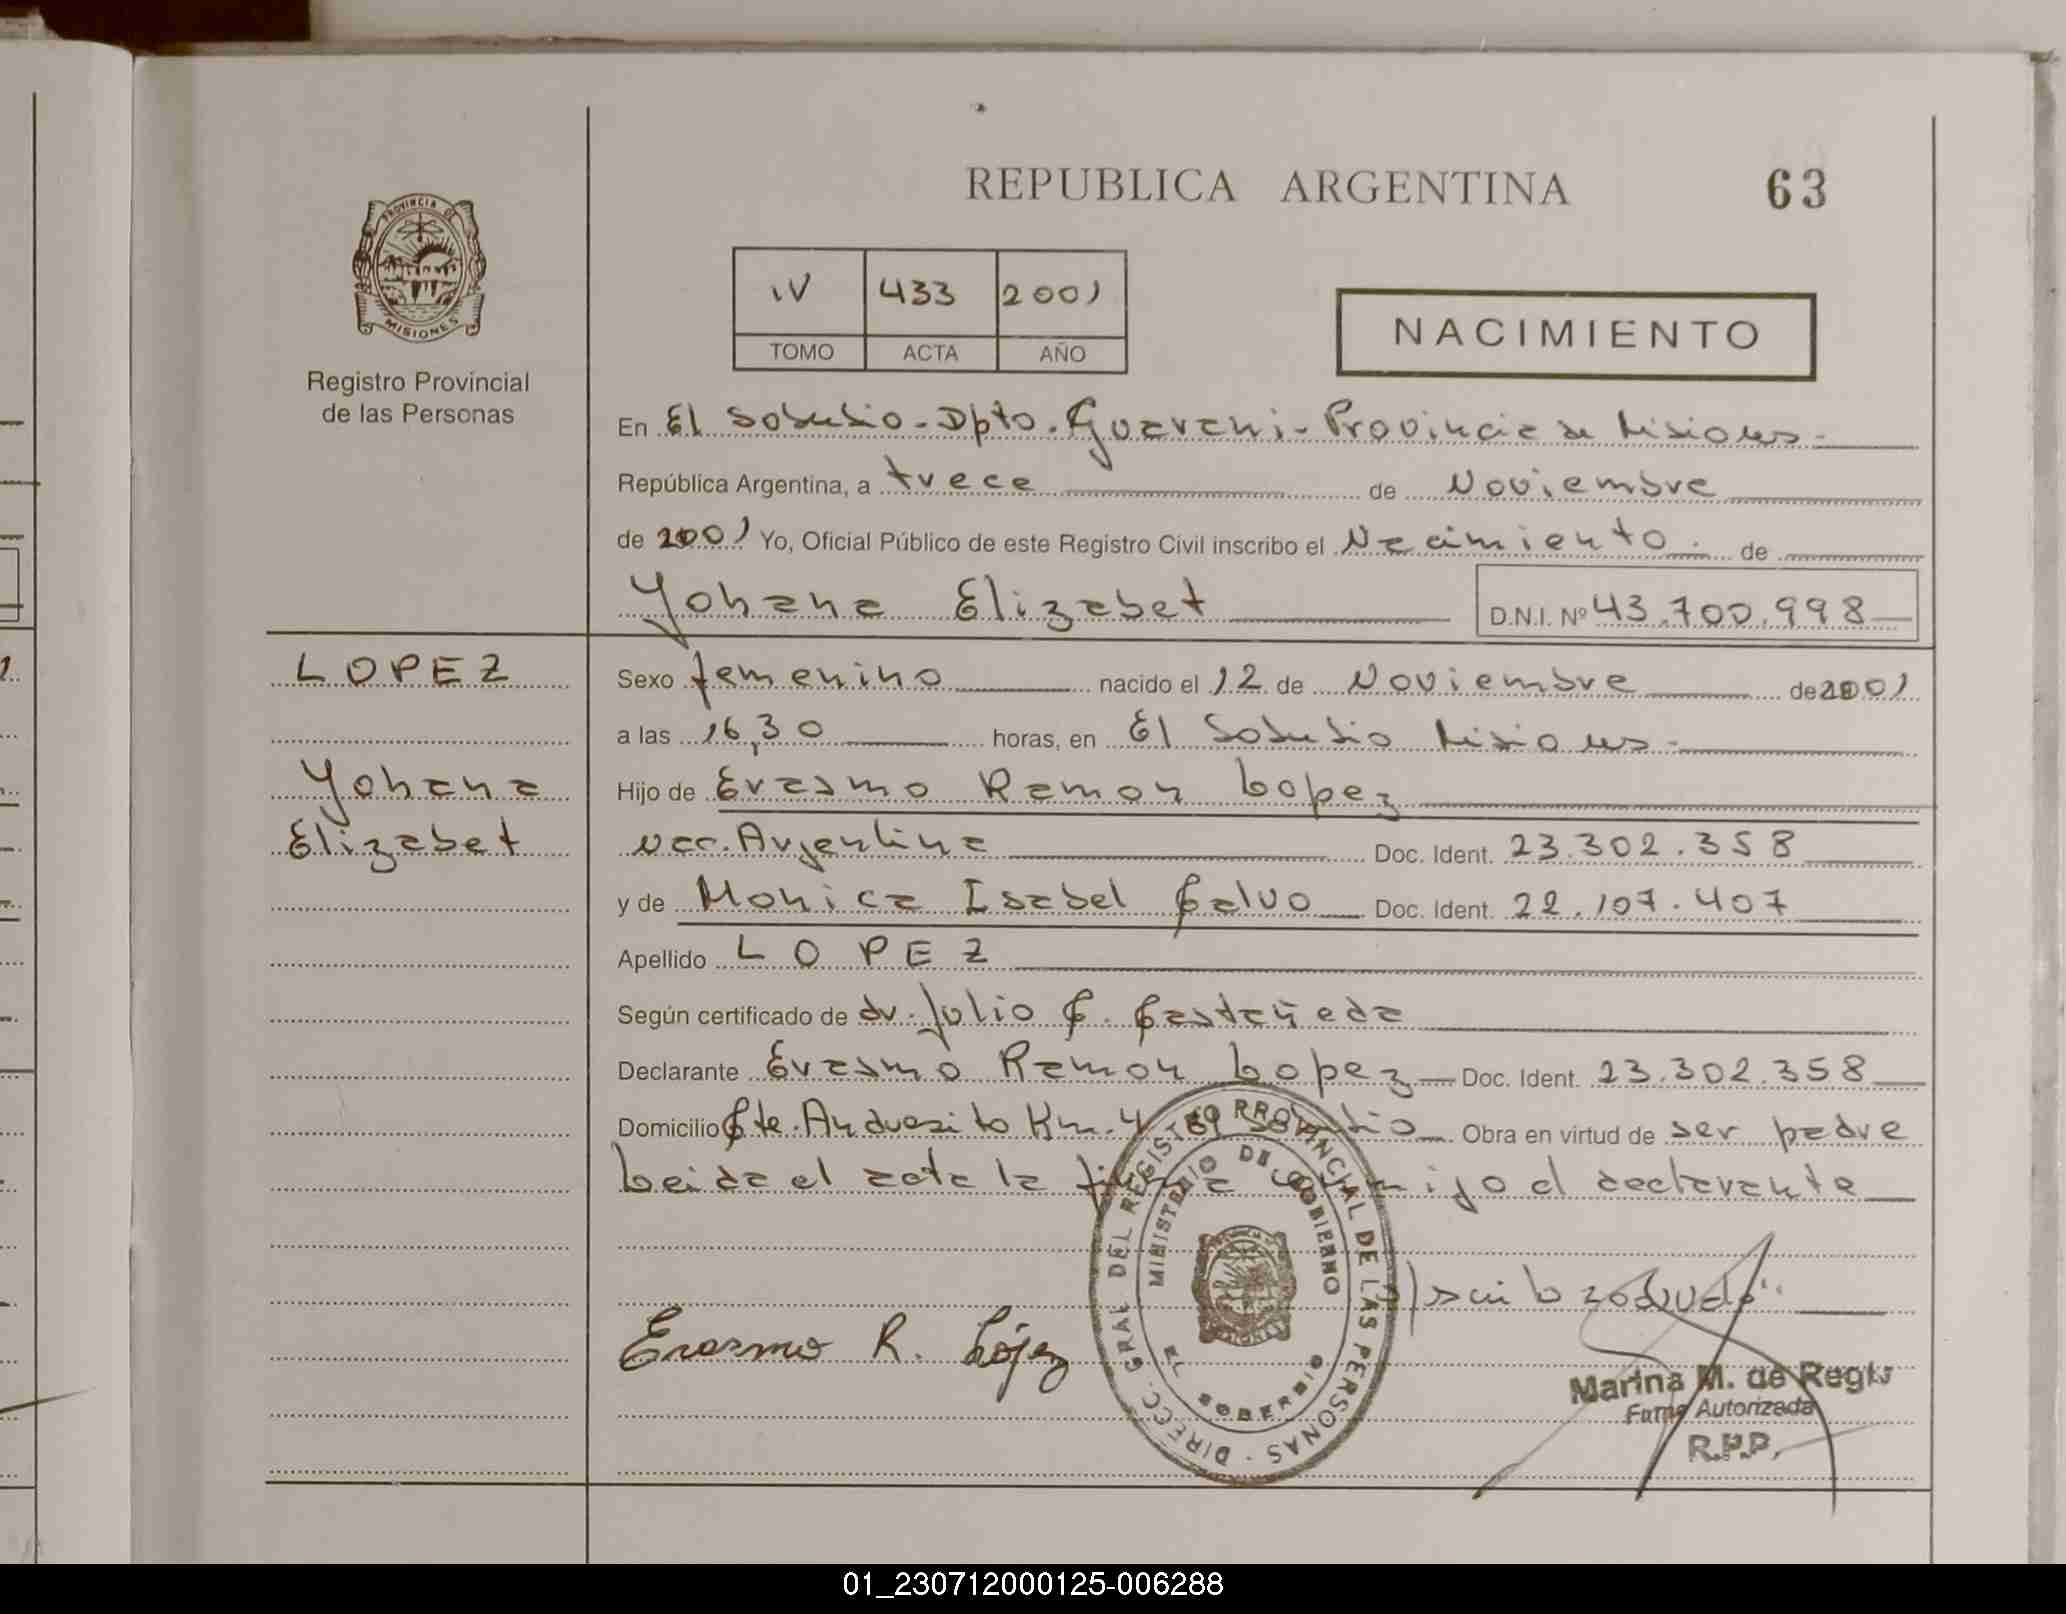 REPUBLICA ARGENTINA 63
PROVINCIA DE
MISIONES
Registro Provincial
de las Personas
IV 433 2001
TOMO ACTA AÑO
NACIMIENTO
En El Soberbio - Dpto. Guarani - Provincia de Misiones -
República Argentina, a trece de Noviembre
de 2001 Yo, Oficial Público de este Registro Civil inscribo el Nacimiento. de
Yohana Elizabet D.N.I. Nº 43.700.998
LOPEZ
Yohana
Elizabet
Sexo femenino nacido el 12 de Noviembre de 2001
a las 16,30 horas, en El Soberbio Misiones -
Hijo de Erasmo Ramon Lopez
nac. Argentina Doc. Ident. 23.302.358
y de Monica Isabel Calvo Doc. Ident. 22.107.407
Apellido LOPEZ
Según certificado de dr. Julio C. Castañeda
Declarante Erasmo Ramon Lopez Doc. Ident. 23.302.358
Domicilio Cte. Andresito Km. 4 El Soberbio Obra en virtud de ser padre
Leida el acta la firma conmigo el declarante
Erasmo R. López
DIRECC. GRAL DEL REGISTRO PROVINCIAL DE LAS PERSONAS
MINISTERIO DE GOBIERNO
EL SOBERBIO
Marina M. de Regis
Firma Autorizada
R.P.P.
01_230712000125-006288